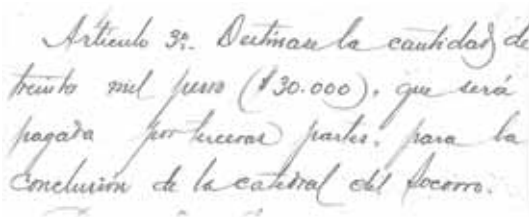 Artículo 3º. Destínase la cantidad de
treinta mil pesos ($30.000), que será
pagada por terceras partes, para la
conclusión de la catedral del Socorro.